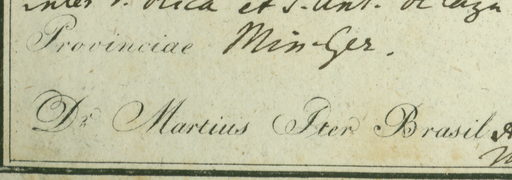 et S. Ant.
Provinciae Min-Ger.
Dr. Martius Iter Brasil